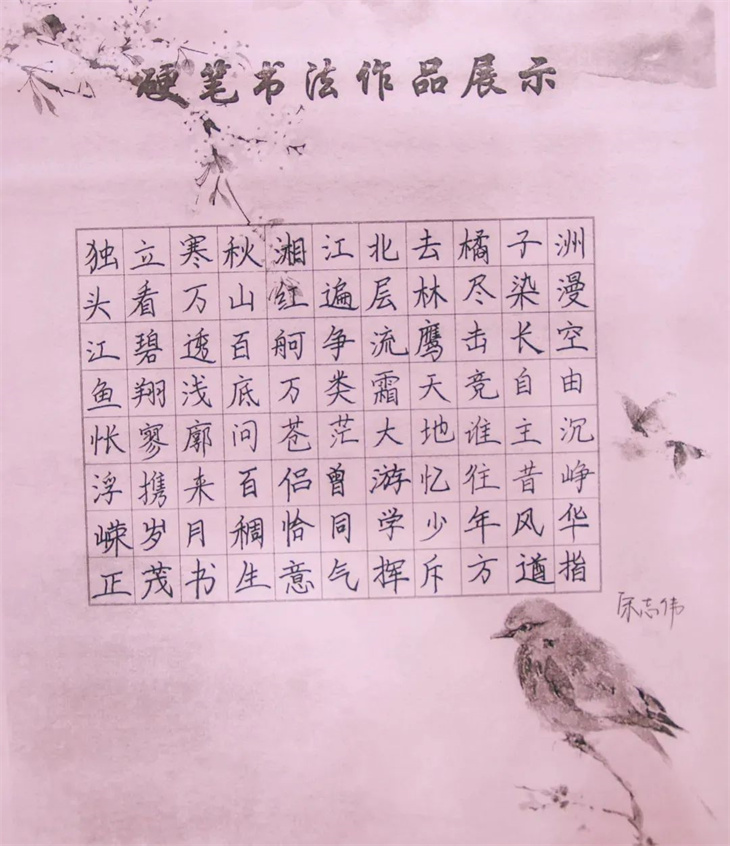 硬笔书法作品展示
独立寒秋湘江北去橘子洲
头看万山红遍层林尽染漫
江碧透百舸争流鹰击长空
鱼翔浅底万类霜天竞自由
怅寥廓问苍茫大地谁主沉
浮携来百侣曾游忆往昔峥
嵘岁月稠恰同学少年风华
正茂书生意气挥斥方遒指
志伟